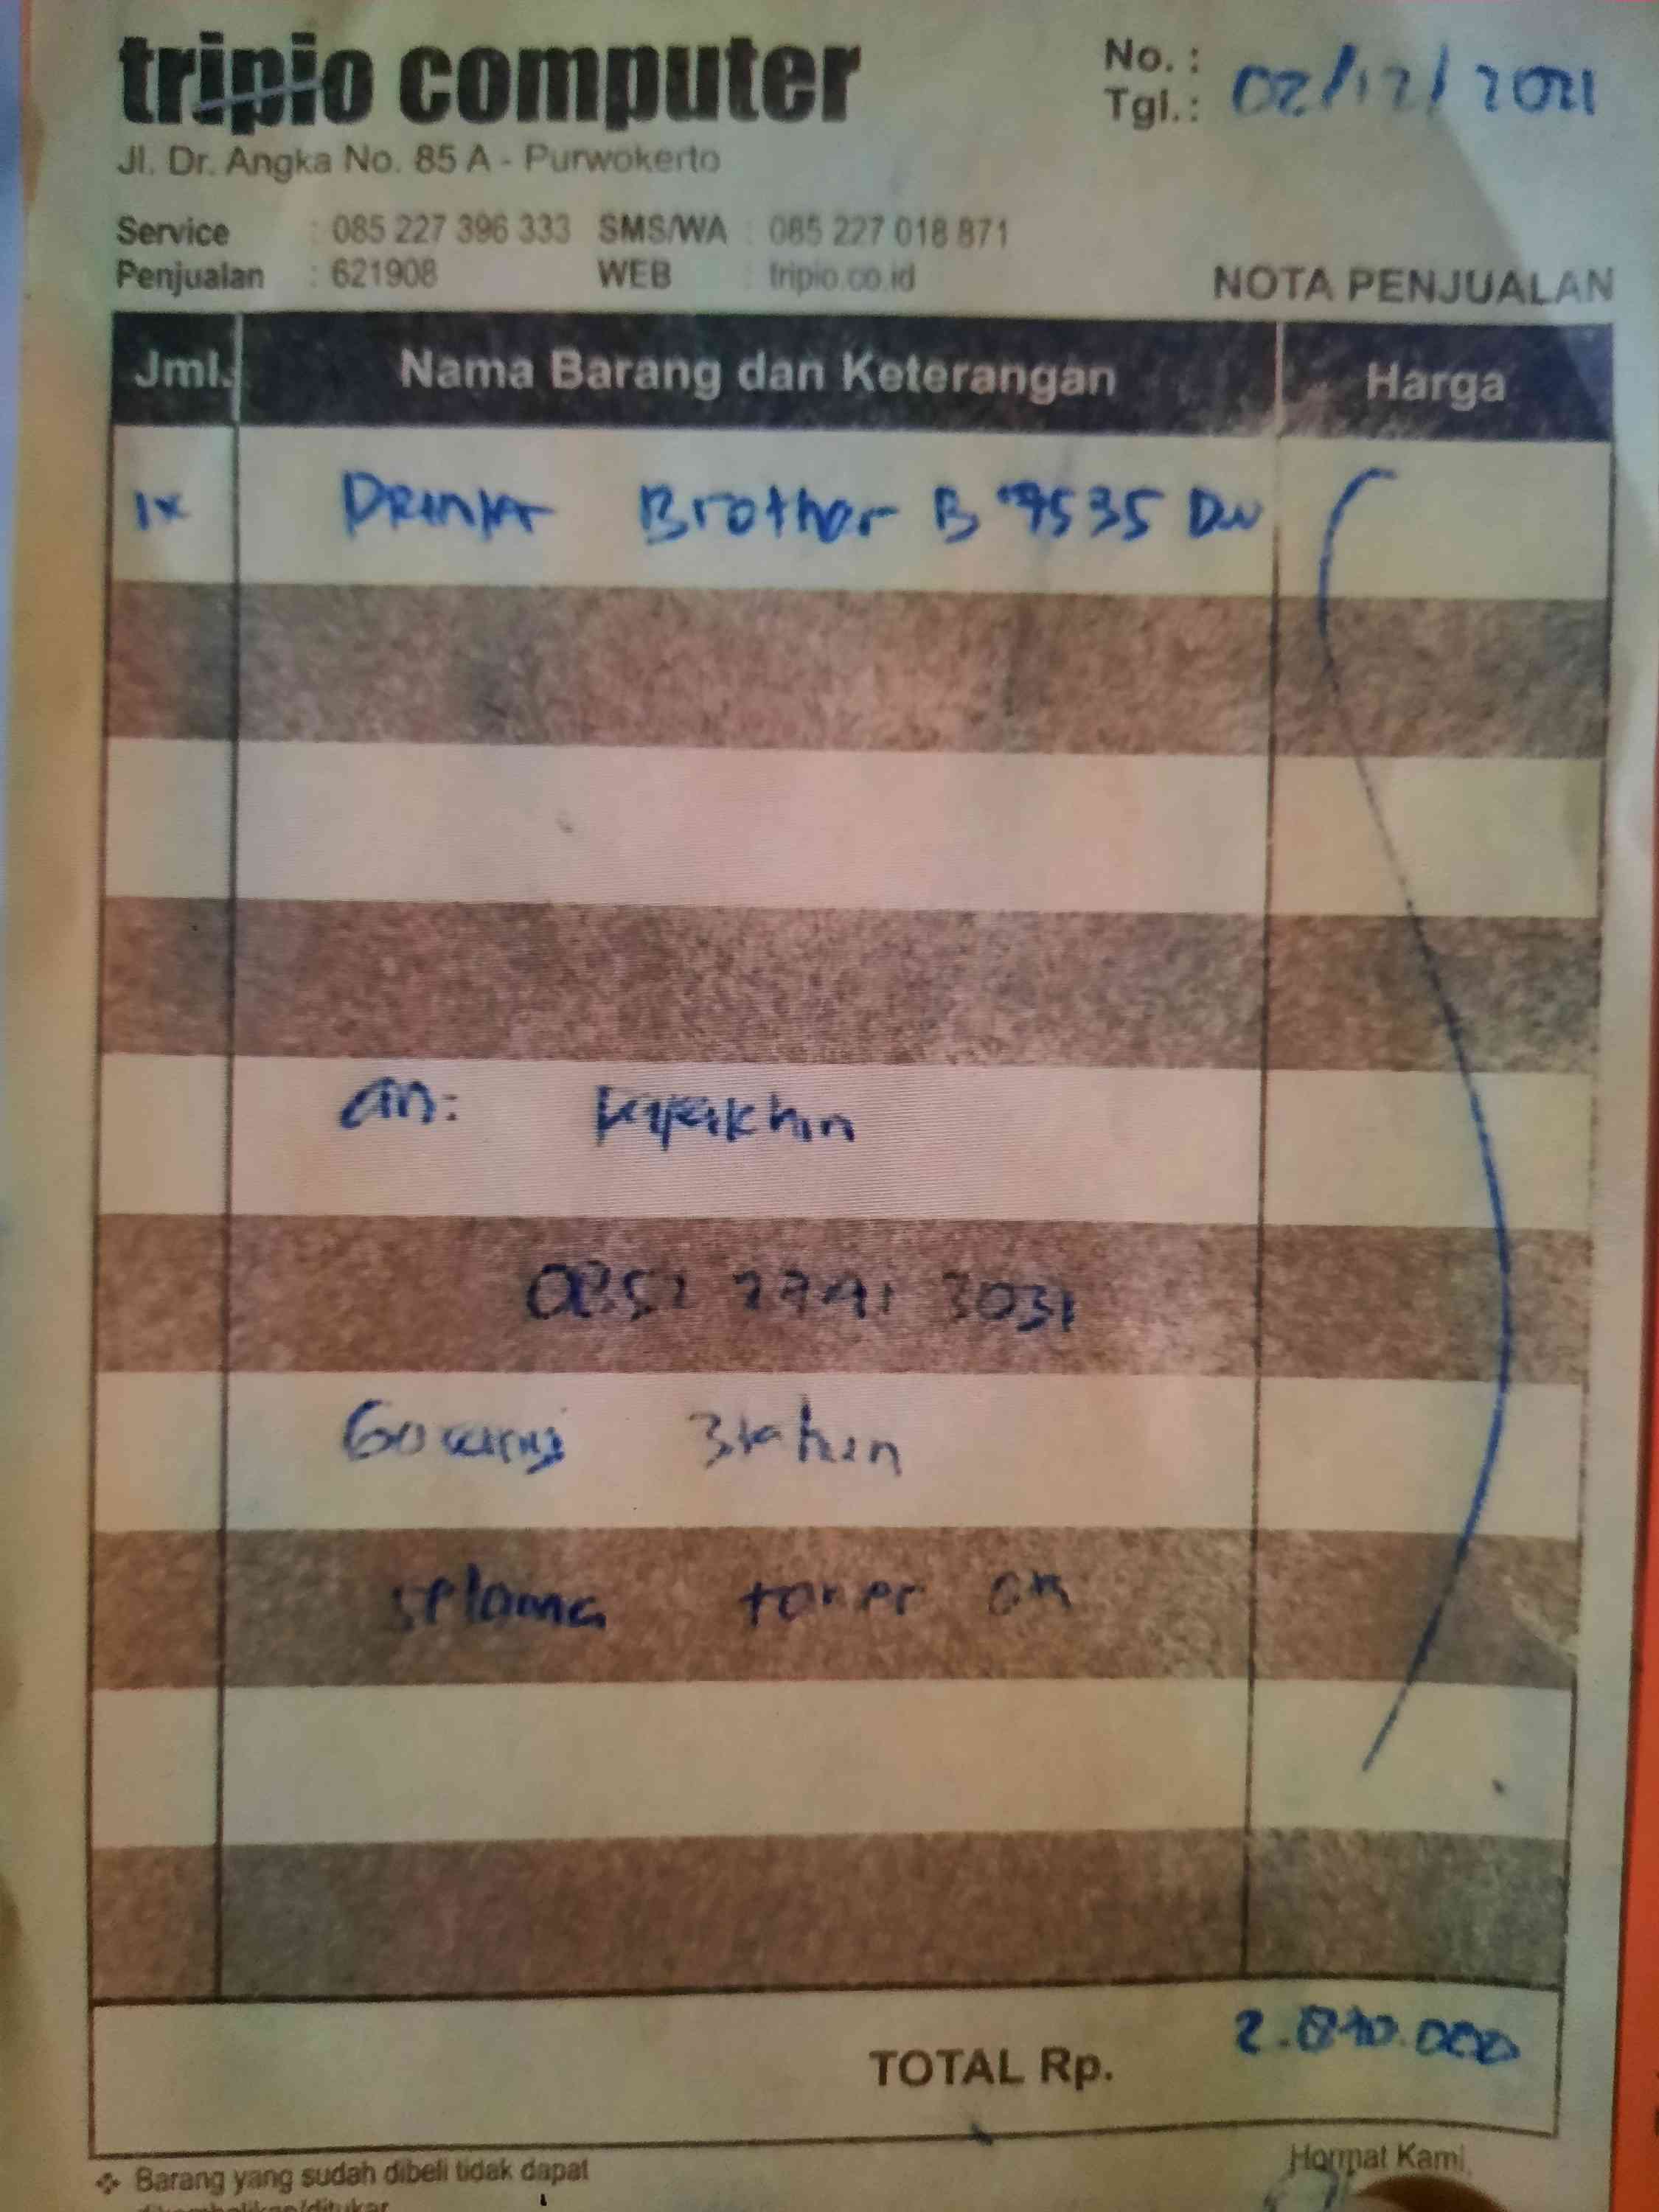 tripio computer
No. :
Tgl. : 02/12/2021
Jl. Dr. Angka No. 85 A - Purwokerto
Service : 085 227 396 333 SMS/WA : 085 227 018 871
Penjualan : 621908 WEB : tripio.co.id
NOTA PENJUALAN
Jml. Nama Barang dan Keterangan Harga
1x Printer Brother B 7535 DW
an:
0852 2791 3031
Garansi 3 tahun
selama toner ori
TOTAL Rp. 2.870.000
Hormat Kami,
❖ Barang yang sudah dibeli tidak dapat
dikembalikan/ditukar